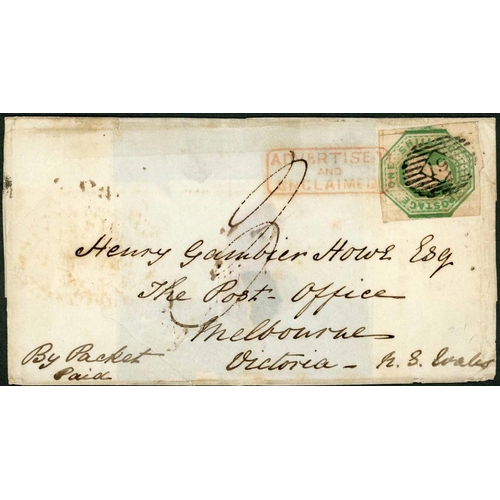 ADVERTISED
AND
UNCLAIMED
ONE SHILLING
POSTAGE
3
Henry Gambier Howe Esq
The Post-Office
Melbourne
Victoria - N. S. Wales
By Packet
Paid